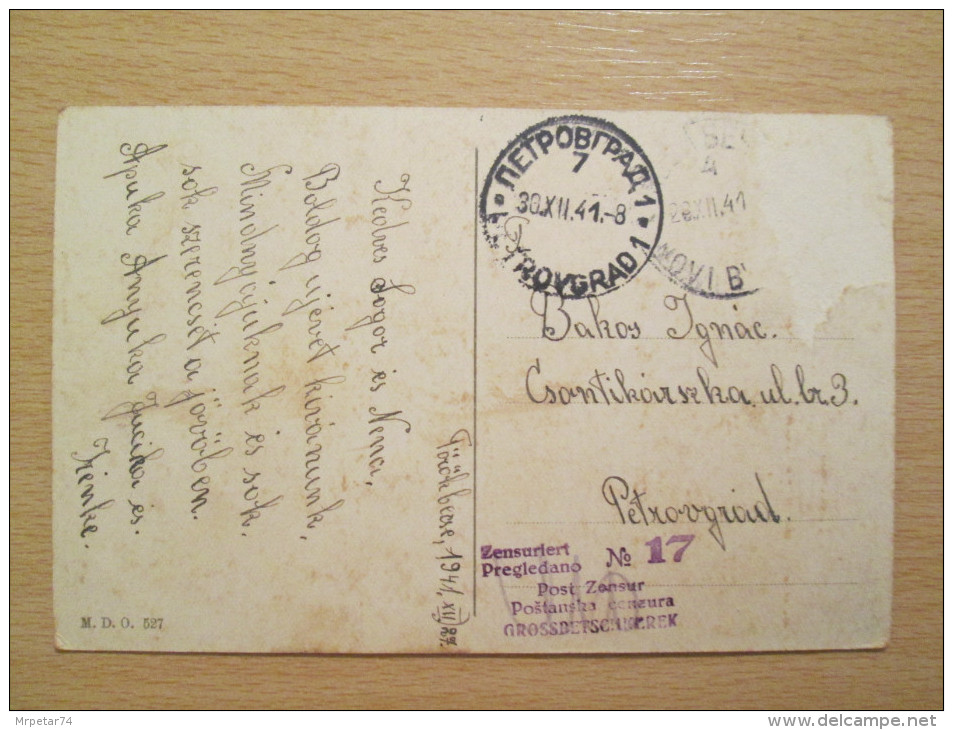 Törökbecse, 1941. XII/27.
Kedves Sógor és Nena,
Boldog újévet kívánunk,
Mindnyájuknak és sok
sok szerencsét a jövőben.
Apuka Anyuka Jucika és
Irénke.
M. D. O. 527
ПЕТРОВГРАД 1
7
30.XII.41.-8
PETROVGRAD 1
4
28.XII.41
NOVI B
Bakos Ignác.
Csantikárszka. ul. br. 3.
Petrovgrád.
Zensuriert
Pregledano
№ 17
Post Zensur
Poštanska cenzura
GROSSBETSCHKEREK
Mrpetar74
www.delcampe.net